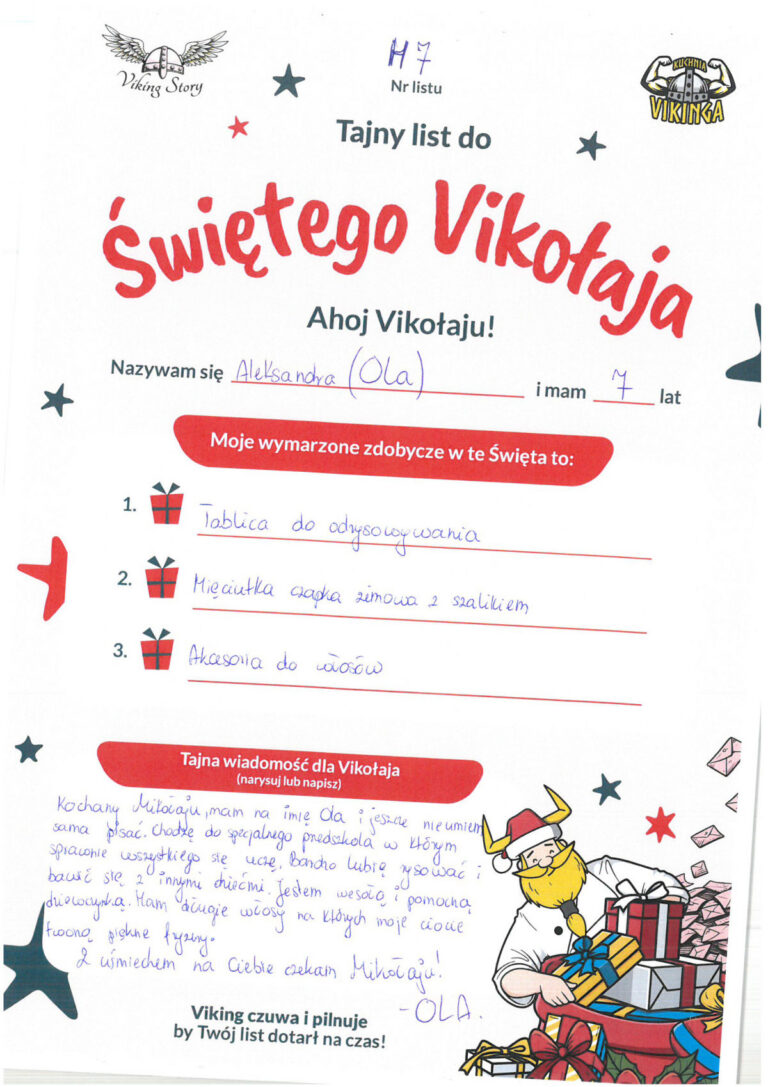 Viking Story
H7
Nr listu
KUCHNIA
VIKINGA
Tajny list do
Świętego Vikołaja
Ahoj Vikołaju!
Nazywam się Aleksandra (Ola) i mam 7 lat
Moje wymarzone zdobycze w te Święta to:
1. Tablica do odrysowywania
2. Mięciutka czapka zimowa z szalikiem
3. Akcesoria do włosów
Tajna wiadomość dla Vikołaja
(narysuj lub napisz)
Kochany Mikołaju, mam na imię Ola i jeszcze nie umiem
sama pisać. Chodzę do specjalnego przedszkola w którym
sprawnie wszystkiego się uczę. Bardzo lubię rysować i
bawić się z innymi dziećmi. Jestem wesołą i pomocną
dziewczynką. Mam długie włosy na których moje ciocie
tworzą piękne fryzury.
Z uśmiechem na Ciebie czekam Mikołaju!
- OLA.
Viking czuwa i pilnuje
by Twój list dotarł na czas!